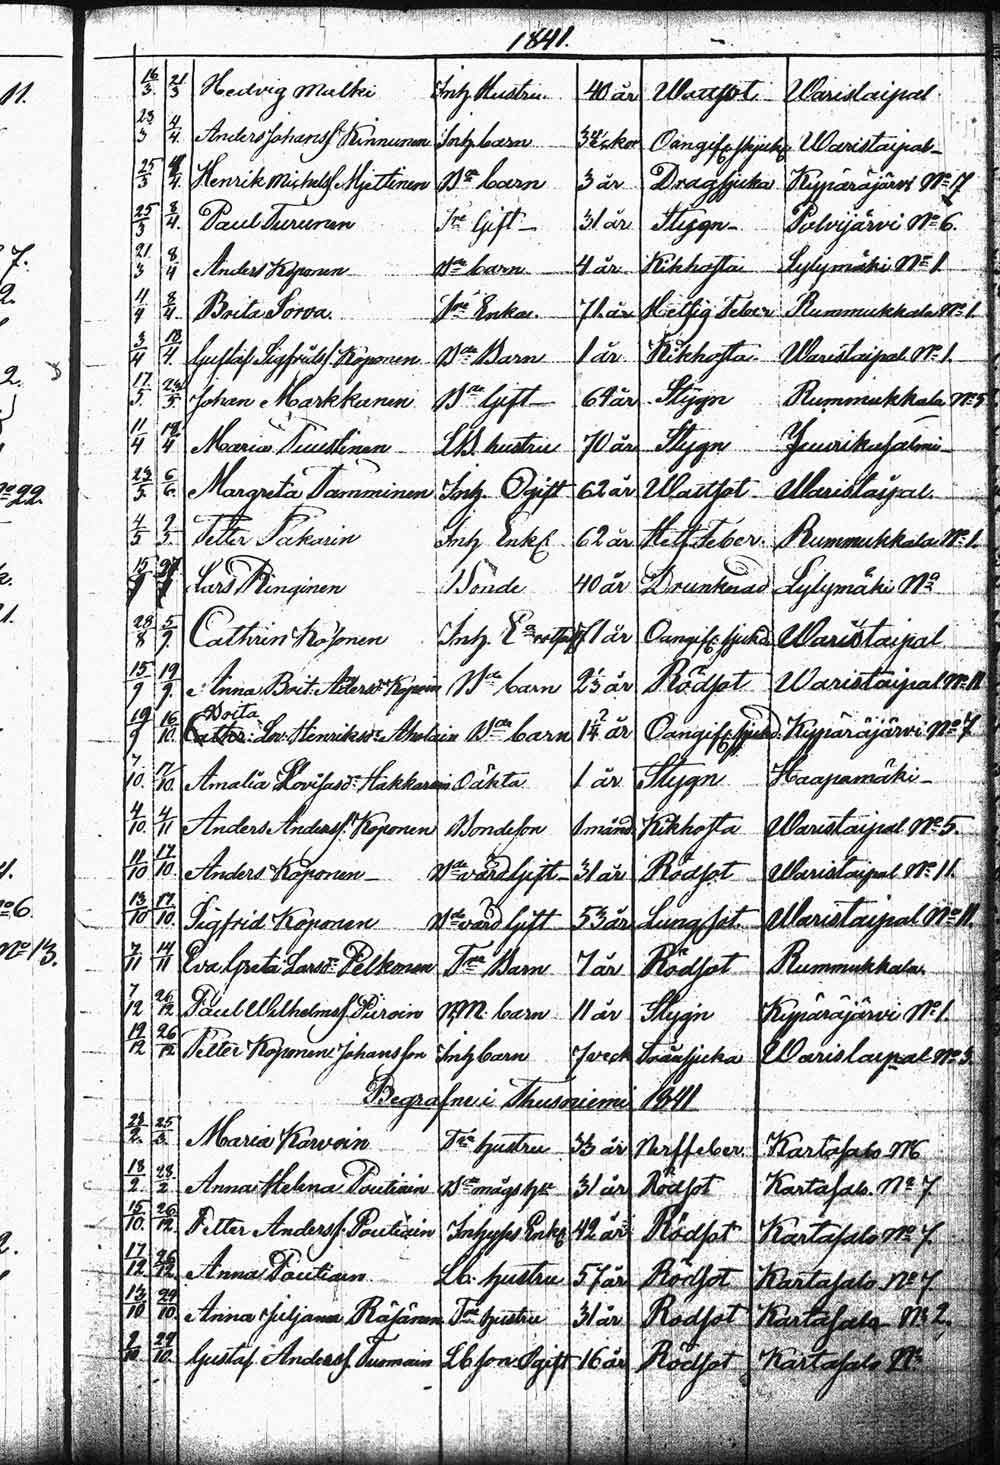 1841.
16/3. 21/3 Hedvig Mulki Inh. Hustru. 40 år Wattsot Waristaipal
23/3 4/4. Anders Johansf. Kinnunen Inh. barn 3 Oangif. sjukd. Waristaipal
25/3 4/4. Henrik Michelsf. Mjettinen Bde barn 3 år Dragsjuka Kypäräjärvi No 17
25/3 8/4. Paul Turunen Tre Gift 31 år Stygn Polvijärvi No 6.
21/3 8/4 Anders Koponen Bde barn 4 år Kikhosta Lylymäki No 1.
4/4 8/4. Brita Sorsa. Tre Enka. 71 år Hetsig Feber Rummukkala No 1
3/4 18/4. Gustaf Sigfridsf. Koponen Bde Barn 1 år Kikhosta Waristaipal No 1.
17/5. 23/5. Johan Markkanen Bde Gift 64 år Stygn Rummukkala No 5
11/4 18/4 Maria Tuuslinen LB. hustru 70 år Stygn Jourikasalmi
23/5. 6/6. Margreta Tamminen Inh. Ogift 62 år Wattsot Waristaipal.
4/5 9/5. Petter Pakarin Inh. Enkl. 62 år Het. Feber. Rummukkala No 1.
15 27 Lars Ringinen Bonde 40 år Drunknad Lylymäki No
28/8 5/9. Cathrin Kosonen Inh. 71 år Oangif. sjukd. Waristaipal
15/9 19/9. Anna Brit. Andersdr. Koponen Bde barn 2½ år Rödsot Waristaipal No 11
19/9 16/10. Brita Lov. Henriksdr. Aholain Bde barn 1 år Oangif. sjukd. Kypäräjärvi No 7
7/10. 17/10. Amalia Lovisasdr. Hakkarain Oäkta 1 år Stygn Haapamäki
4/10. 4/11 Anders Andersf. Koponen Bondeson 1 månd. Kikhosta Waristaipal No 5.
11/10 17/10. Anders Koponen Bde värd Gift 31 år Rödsot Waristaipal No 11.
13/10 17/10. Sigfrid Koponen Bde värd Gift 53 år Lungsot. Waristaipal No 11.
7/11 14/11 Eva Greta Larsdr. Pelkonen Tre Barn 7 år Rödsot Rummukkala.
7/12 26/12 Paul Wilhelmsf. Piroin N.M. barn 11 år Stygn Kypäräjärvi No 1.
19/12 26/12 Petter Koponen Johansson Inh. barn 7 veck. Waristaipal No 3.
Begrafne i Thusniemi 1841
23/2. 25/3. Maria Karvoin Tre hustru 33 år Nerffeber. Kartasalo No 6
18/2. 28/2 Anna Helena Poutiain Bde mågs hu 31 år Rödsot Kartasalo. No 7.
15/10. 26/12. Petter Andersf. Poutiain Inhyses Enkl. 42 år Rödsot Kartasalo No 7.
17/12 26/12. Anna Poutiain Lb. hustru 57 år Rödsot Kartasalo No 7.
13/10 24/10. Anna Juljana Räsänen Tre hustru 31 år Rödsot Kartasalo No 2.
9/10. 24/10. Gustaf Andersf. Tuomain Lb. son Ogift 16 år Rödsot Kartasalo No